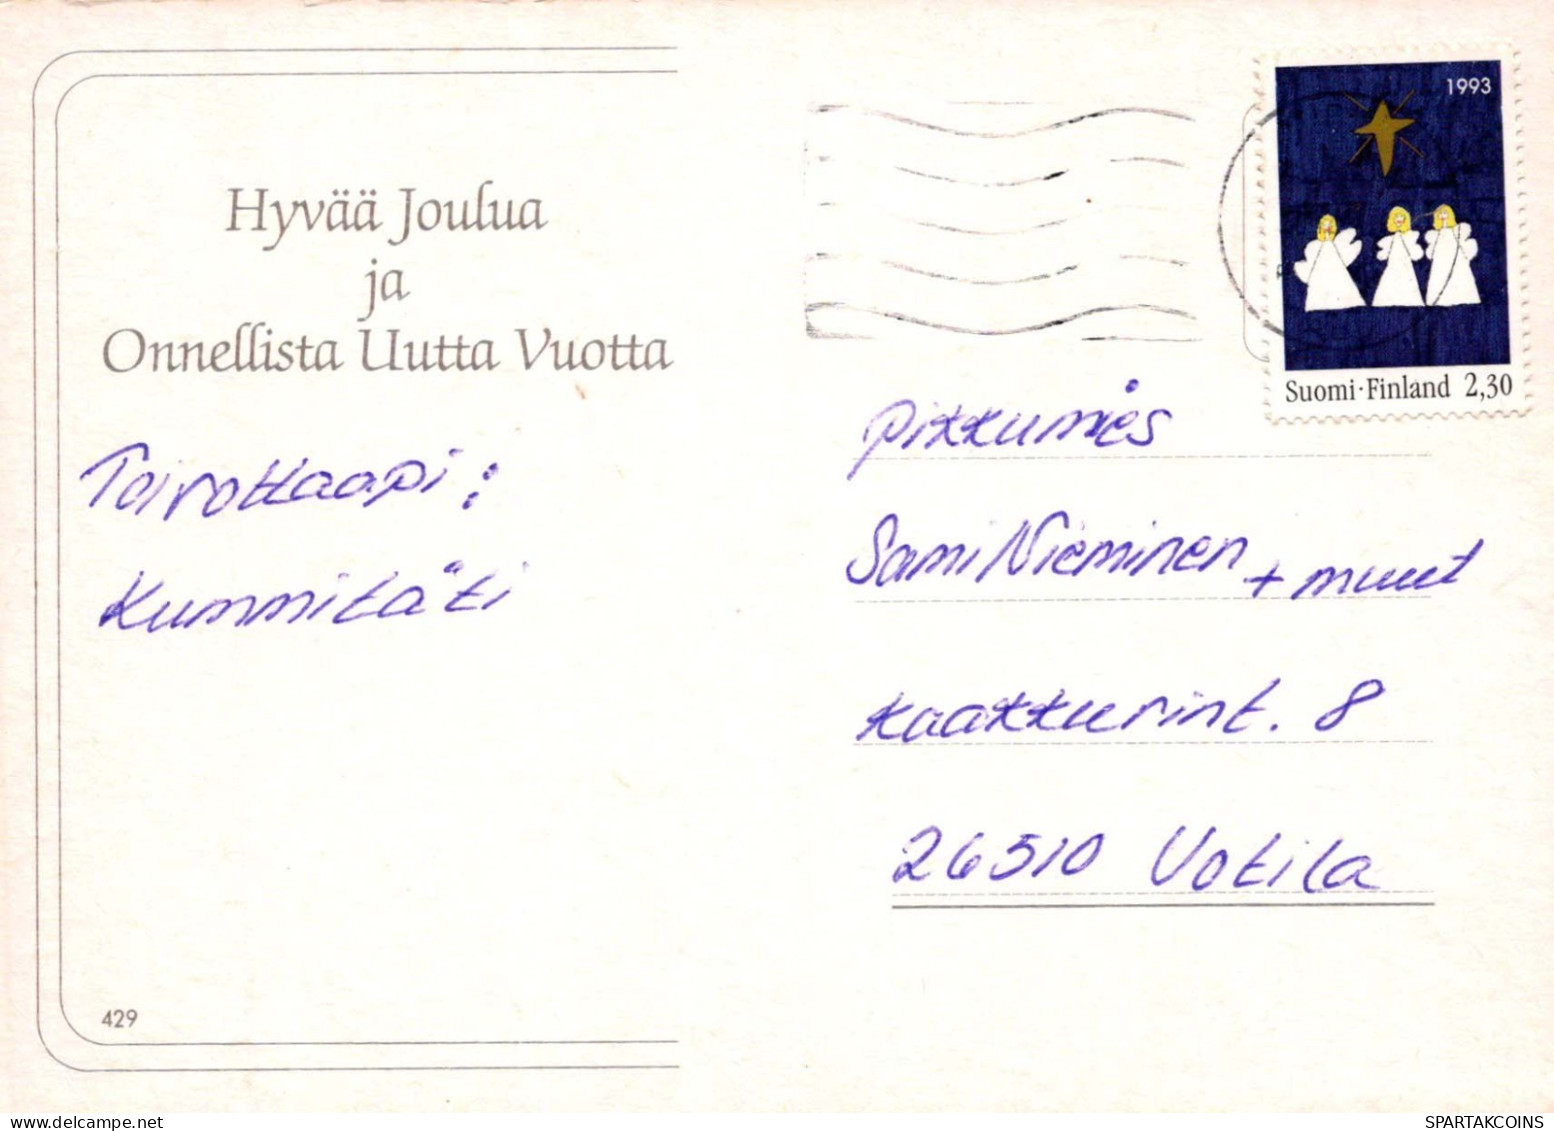 Hyvää Joulua
ja
Onnellista Uutta Vuotta
Toivottaapi:
Kummitäti
429
1993
Suomi·Finland 2,30
Pikkumies
Sami Nieminen + muut
Kaakkurint. 8
26510 Uotila
SPARTAKCOINS